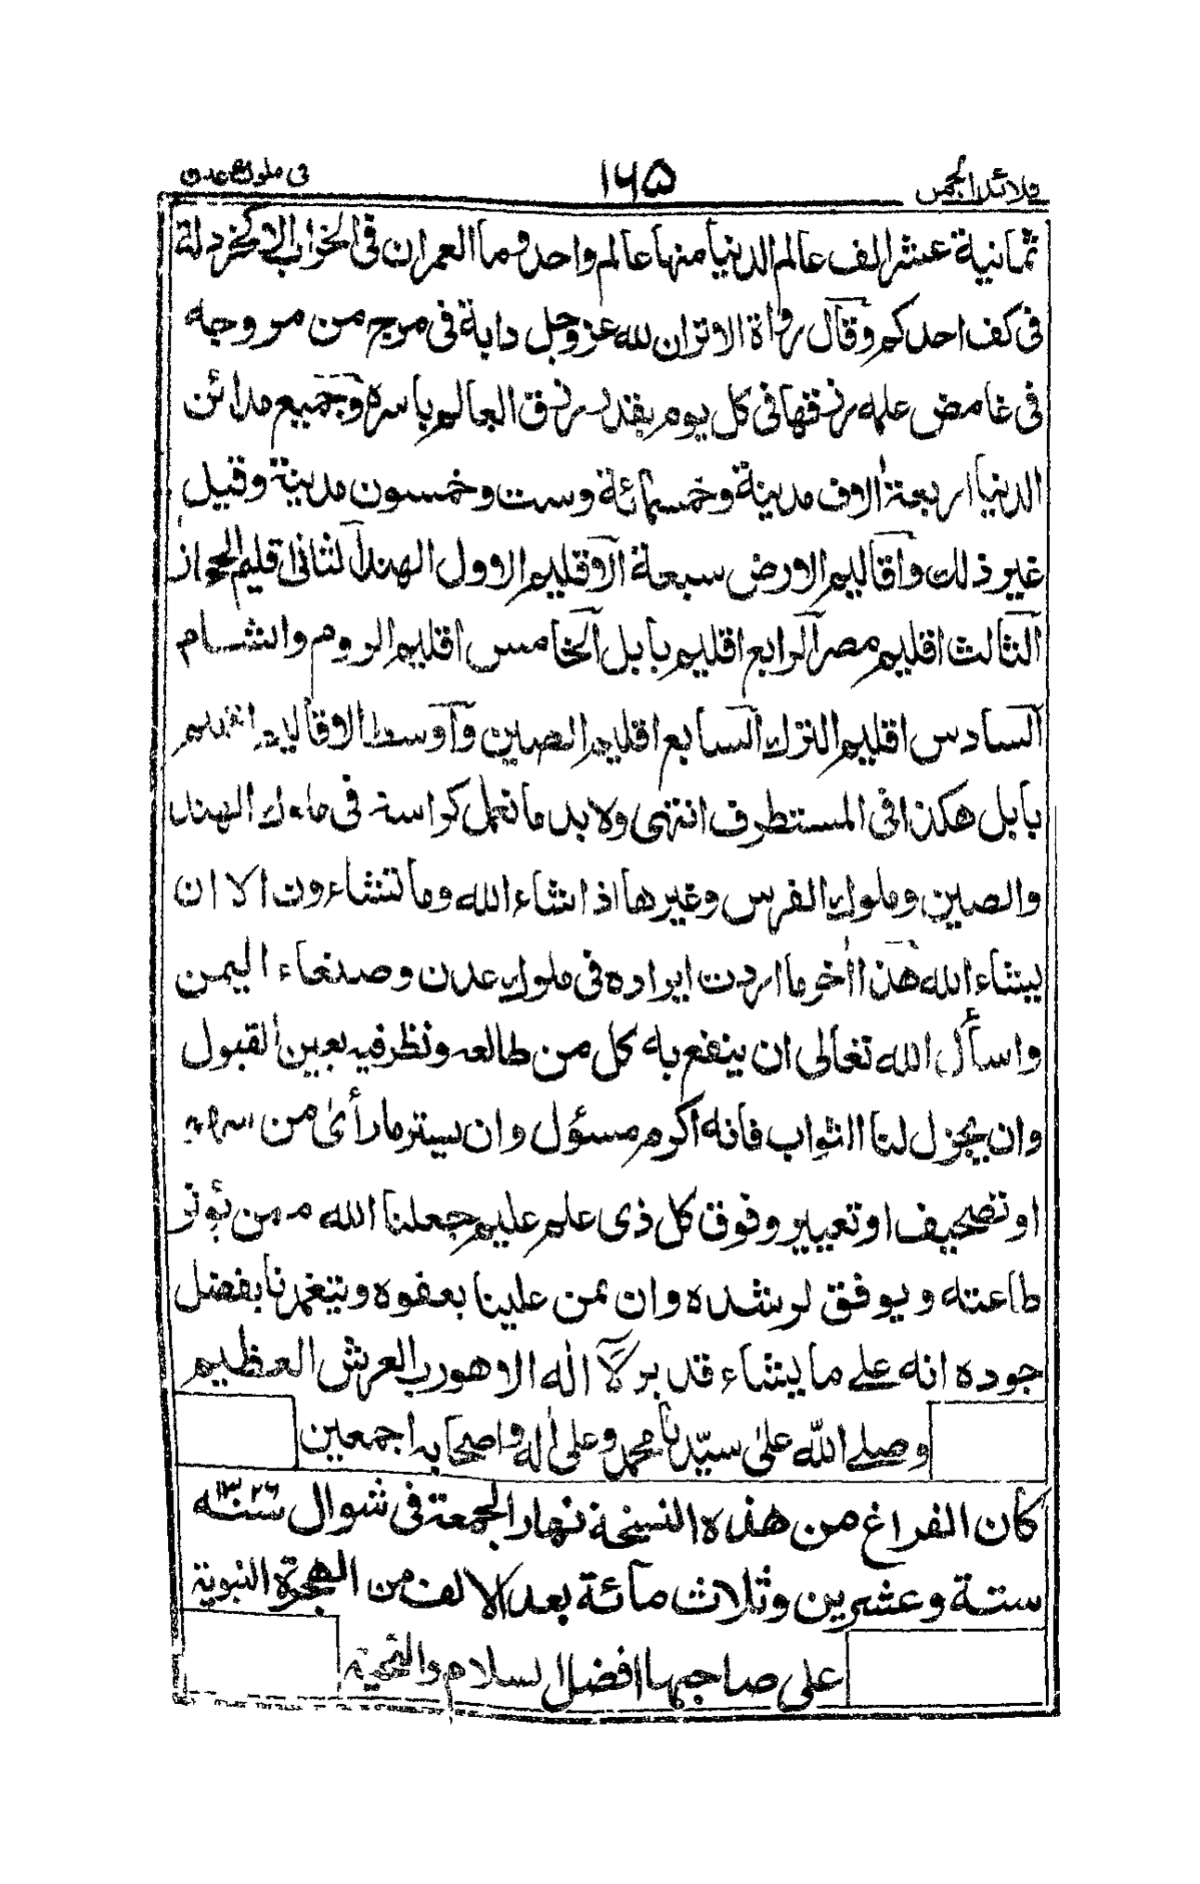 قلائد الجمن ١٦٥ فى ملوك عدن
ثمانية عشر الف عالم الدنيا منها عالم واحد وما العمران فى الخراب الا كخردلة
فى كف احدكم وقال رواة الاثر ان لله عز وجل دابة فى مرج من مروجه
فى غامض علمه رزقها فى كل يوم بقدر رزق العالم باسره وجميع مدائن
الدنيا اربعة الاف مدينة وخمسمائة وست وخمسون مدينة وقيل
غير ذلك واقاليم الارض سبعة الاقليم الاول الهند الثانى اقليم الحجاز
الثالث اقليم مصر الرابع اقليم بابل الخامس اقليم الروم والشام
السادس اقليم الترك السابع اقليم الصين واوسط الاقاليم اقليم
بابل هكذا فى المستطرف انتهى ولا بد ما نعمل كراسة فى ملوك الهند
والصين وملوك الفرس وغيرها اذا شاء الله وما تشاءون الا ان
يشاء الله هذا اٰخر ما اردت ايراده فى ملوك عدن وصنعاء اليمن
واسأل الله تعالى ان ينفع به كل من طالعه ونظر فيه بعين القبول
وان يجزل لنا الثواب فانه اكرم مسؤل وان يستر ما رأى من
او تصحيف او تغيير وفوق كل ذى علم عليم جعلنا الله ممن يؤثر
طاعته ويوفق لرشده وان يمن علينا بعفوه ويتغمدنا بفضل
جوده انه على ما يشاء قدير لا اله الا هو رب العرش العظيم
وصلے الله علىٰ سيّدنا محمد وعلىٰ اٰله واصحابه اجمعين
كان الفراغ من هذه النسخة نهار الجمعة فى شوال سنه ١٣٢٦
ستة وعشرين وثلاث مائة بعد الالف من الهجرة النبوية
على صاحبها افضل السلام والتحية